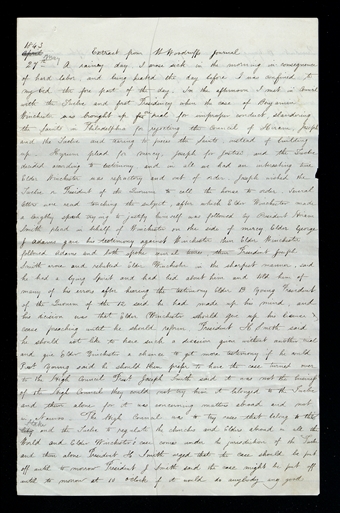 1843
27th May
Extract from W Woodruffs Journal
A rainey day I was sick in the morning in consequence
of hard labor, and being heated the day before I was confined to
my bed the fore part of the day. In the afternoon I met in Council
with the Twelve and first Presidency when the case of Benjamin
Winchester was brought up for trial for improper conduct, slandering
the Saints in Philadelphia for rejecting the council of Hiram, Joseph
and the Twelve and tearing to pieces the Saints instead of building
up. Hyrum plead for mercy, Joseph for justice and the Twelve
decided according to testimony and in all we had an interesting time
Elder Winchester was refractory and out of order Joseph wished the
Twelve or President of the Quorum to call the house to order. Several
letters were read touching the subject, after which Elder Winchester made
a lengthy speech trying to justify himself was followed by President Hiram
Smith plead in behalf of Winchester on the side of mercy Elder George
J Adams gave his testimony against Winchester then Elder Winchester
followed Adams and both spoke several times then President Joseph
Smith arose and rebuked Elder Winchester in the sharpest manner, said
he had a lying spirit and had lied about him and told him of
many of his errors after hearing the testimony Elder B Young President
of the Quorum of the 12 said he had made up his mind, and
his decision was that Elder Winchester should give up his licence &
cease preaching until he should reform. President H Smith said
he should not like to have such a decision given without another trial
and give Elder Winchester a chance to get more testimony if he could
Prest Young said he should then prefer to have the case turned over
to the High Council Prest Joseph Smith said it was not the business
of the High Council they could not try him it belonged to the Twelve
and them alone for it was concerning matters abroad and not
in Nauvoo. The High Council was to try cases that belong to the
Stake and the Twelve to regulate the churches and Elders abroad in all the
World and Elder Winchester's case comes under the jurisdiction of the Twelve
and them alone President H Smith urged that the case should be put
off until to morrow President J Smith said the case might be put off
until to morrow at 10 o'clock if it would do anybody any good